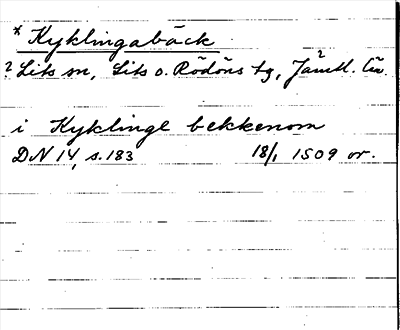 * Kyklingabäck
? Lits sn, Lits o. Rödöns tg, Jämtl. län
i Kyklinge bekkenom
DN 14, s. 183 18/1 1509 or.